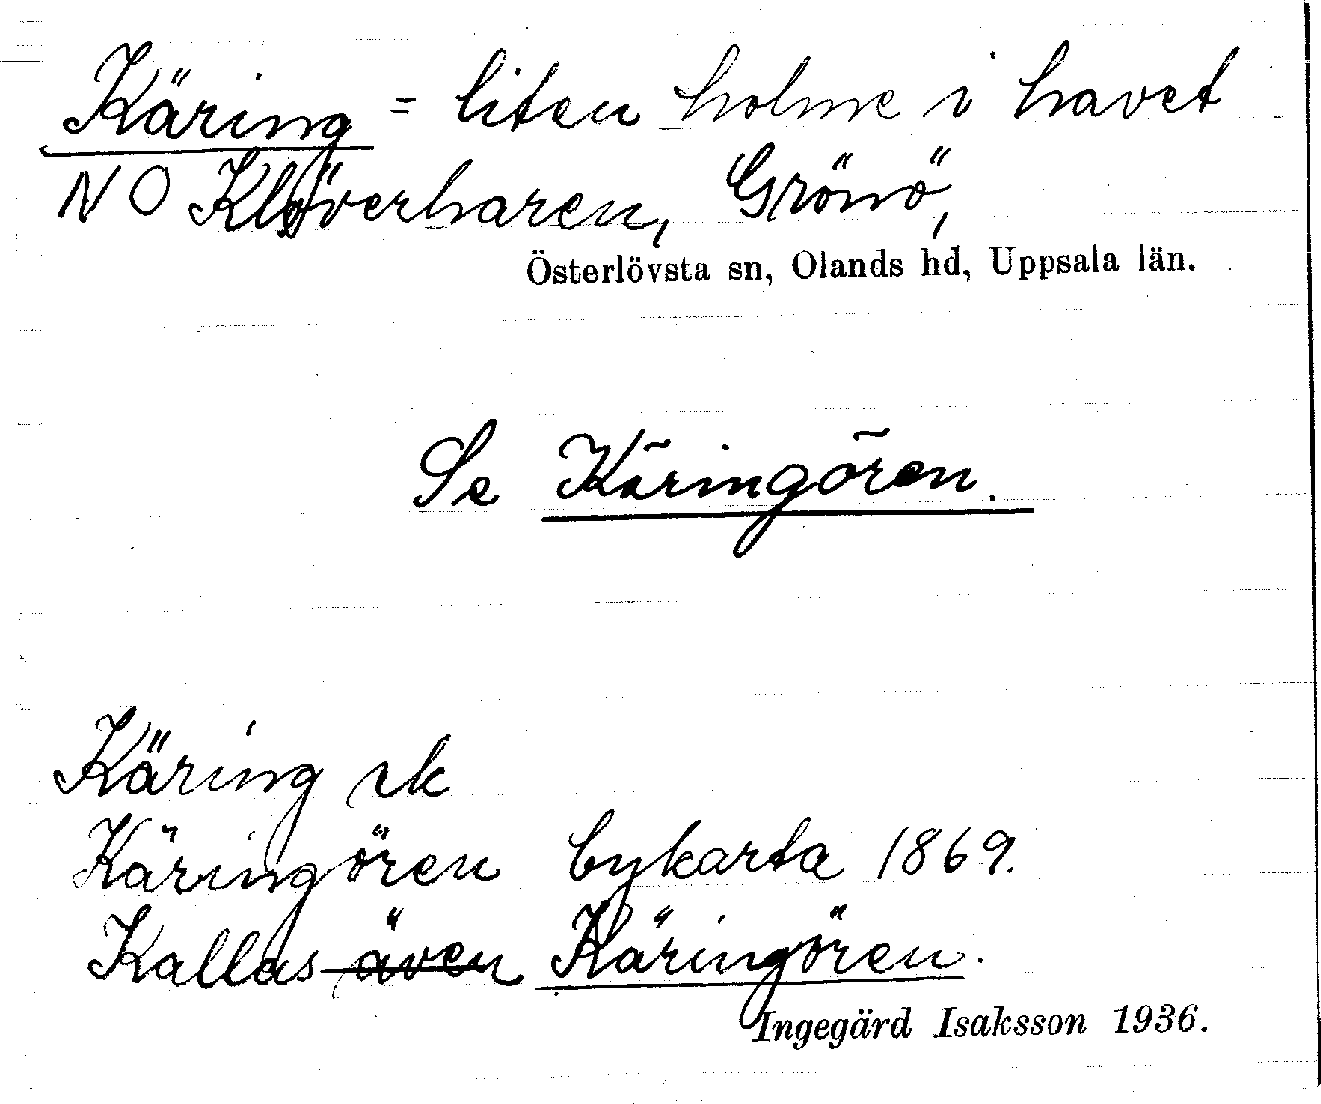 Käring = liten holme i havet
NO Klöverharen, Grönö,
Österlövsta sn, Olands hd, Uppsala län.
Se Käringören.
Käring rk
Käringören bykarta 1869.
Kallas även Käringören.
Ingegärd Isaksson 1936.